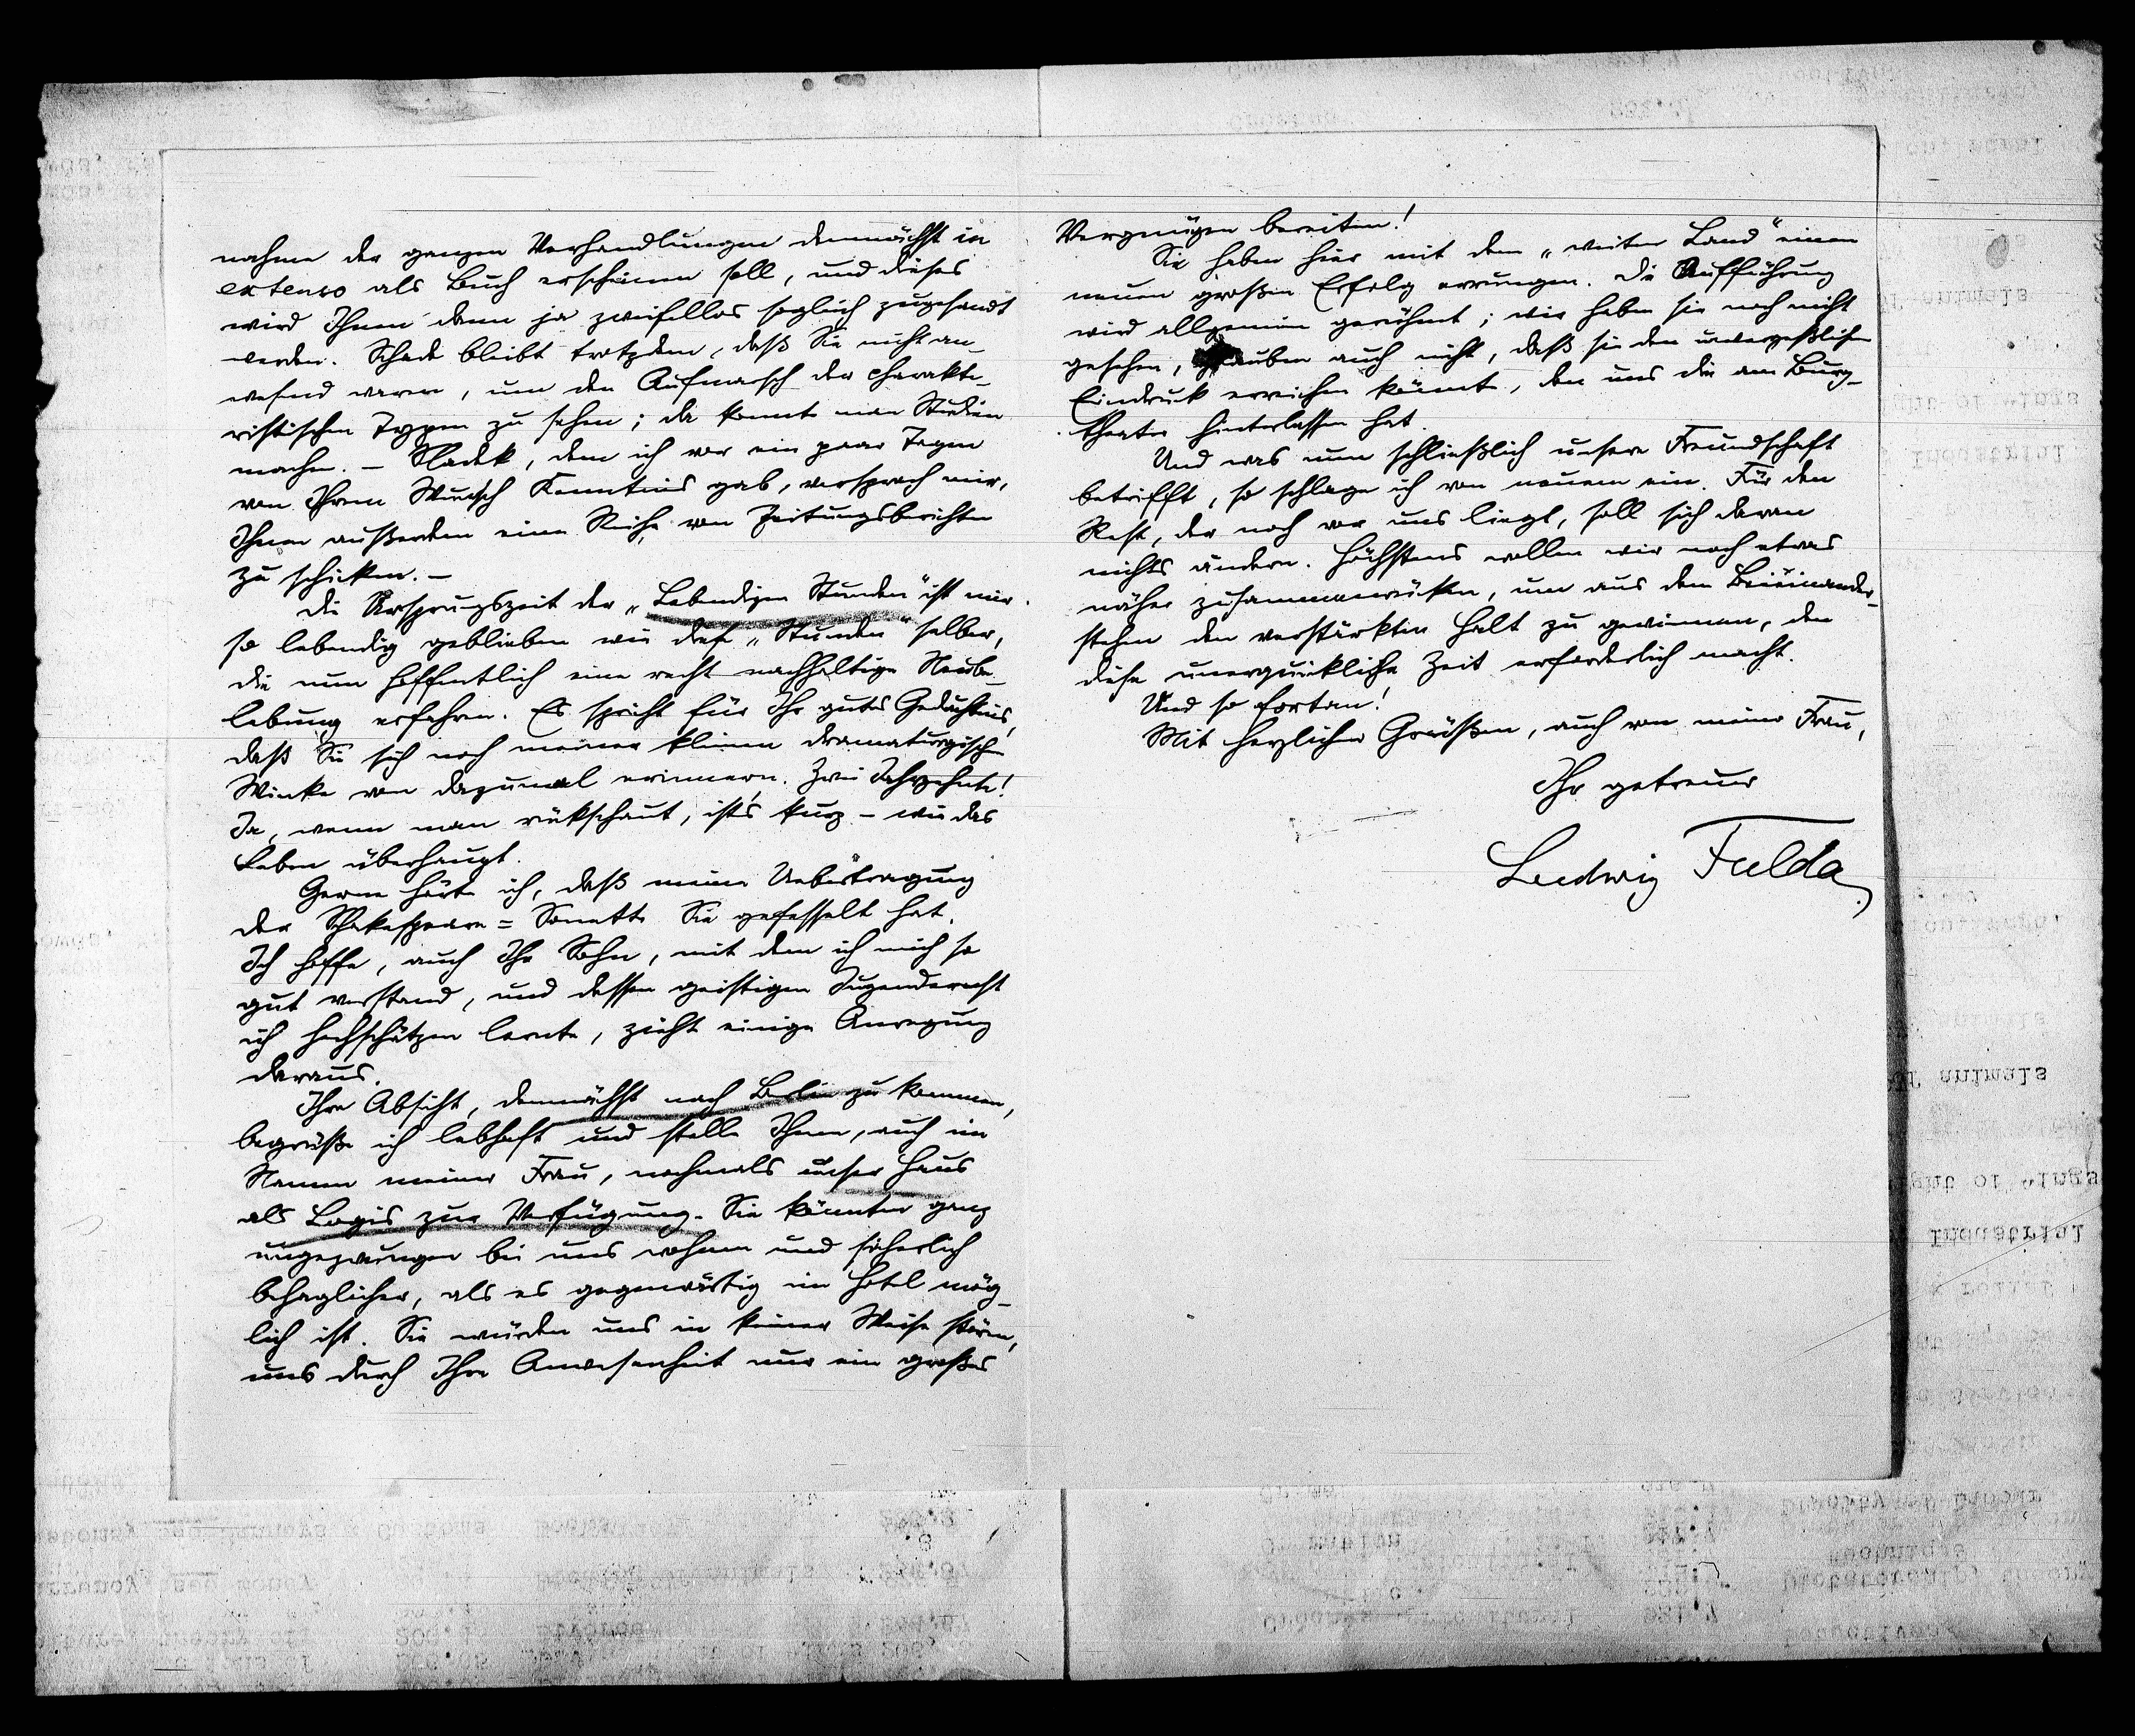 nahme der ganzen Verhandlungen demnächst in
extenso als Buch erscheinen soll, und dieses
wird Ihnen dann ja zweifellos sogleich zugesandt
werden. Schade bleibt trotzdem, daß Sie nicht an-
wesend waren, um den Aufmarsch der charakte-
ristischen Typen zu sehen; da konnte man Studien
machen. – Sladek, dem ich vor ein paar Tagen
von Ihrem Wunsch Kenntnis gab, versprach mir,
Ihnen außerdem eine Reihe von Zeitungsberichten
zu schicken. –
Die Ursprungszeit der „Lebendigen Stunden" ist mir
so lebendig geblieben wie diese „Stunden" selber,
die nun hoffentlich eine recht nachhaltige Neube-
lebung erfahren. Es spricht für Ihr gutes Gedächtnis,
daß Sie sich noch meiner kleinen dramaturgischen
Winke von dazumal erinnern. Zwei Jahrzehnte!
Ja, wenn man rückschaut, ist's kurz – wie das
Leben überhaupt.
Gerne hörte ich, daß meine Uebertragung
der Shakespeare=Sonette Sie gefesselt hat.
Ich hoffe, auch Ihr Sohn, mit dem ich mich so
gut verstand, und dessen geistigen Jugend
ich hochschätzen lernte, zieht einige Anregung
daraus.
Ihre Absicht, demnächst nach Berlin zu kommen,
begrüße ich lebhaft und stelle Ihnen, auch im
Namen meiner Frau, nochmals unser Haus
als Logis zur Verfügung. Sie könnten ganz
ungezwungen bei uns wohnen und sicherlich
behaglicher, als es gegenwärtig im Hotel mög-
lich ist. Sie würden uns in keiner Weise stören,
uns durch Ihre Anwesenheit nur ein großes
Vergnügen bereiten!
Sie haben hier mit dem „weiten Land" einen
neuen großen Erfolg errungen. Die Aufführung
wird allgemein gerühmt; wir haben sie noch nicht
gesehen, glauben auch nicht, daß sie den unvergeßlichen
Eindruck erreichen könnte, den uns die am Burg-
theater hinterlassen hat.
Und was nun schließlich unsere Freundschaft
betrifft, so schlage ich von neuem ein. Für den
Rest, der noch vor uns liegt, soll sich daran
nichts ändern. Höchstens wollen wir noch etwas
näher zusammenrücken, um aus dem Beieinander-
stehen den verstärkten Halt zu gewinnen, den
diese unerquickliche Zeit erforderlich macht.
Und so fortan!
Mit herzlichen Grüßen, auch von meiner Frau,
Ihr getreuer
Ludwig Fulda.